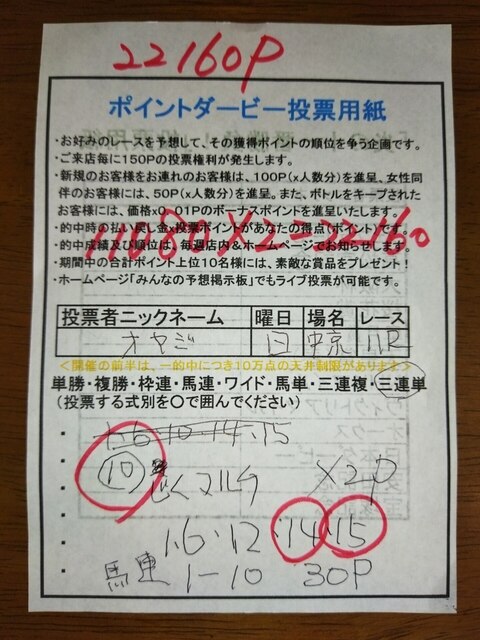 22160P
ポイントダービー投票用紙
・お好みのレースを予想して、その獲得ポイントの順位を争う企画です。
・ご来店毎に150Pの投票権利が発生します。
・新規のお客様をお連れのお客様は、100P(x人数分)を進呈、女性同
伴のお客様には、50P(x人数分)を進呈。また、ボトルをキープされた
お客様には、価格x0.01Pのボーナスポイントを進呈いたします。
・的中時の払い戻し金x投票ポイントがあなたの得点(ポイント)です。
11080×2=22160
・的中成績及び順位は、毎週店内&ホームページでお知らせします。
・期間中の合計ポイント上位10名様には、素敵な賞品をプレゼント!
・ホームページ「みんなの予想掲示板」でもライブ投票が可能です。
投票者ニックネーム 曜日 場名 レース
オヤジ 日 中京 11R
<開催の前半は、一的中につき10万点の天井制限があります>
単勝・複勝・枠連・馬連・ワイド・馬単・三連複・三連単
(投票する式別を○で囲んでください)
・1 6 10 14・15
・⑩ じくマルチ ×2P
・1.6・12・14・15
・馬連 1-10 30P